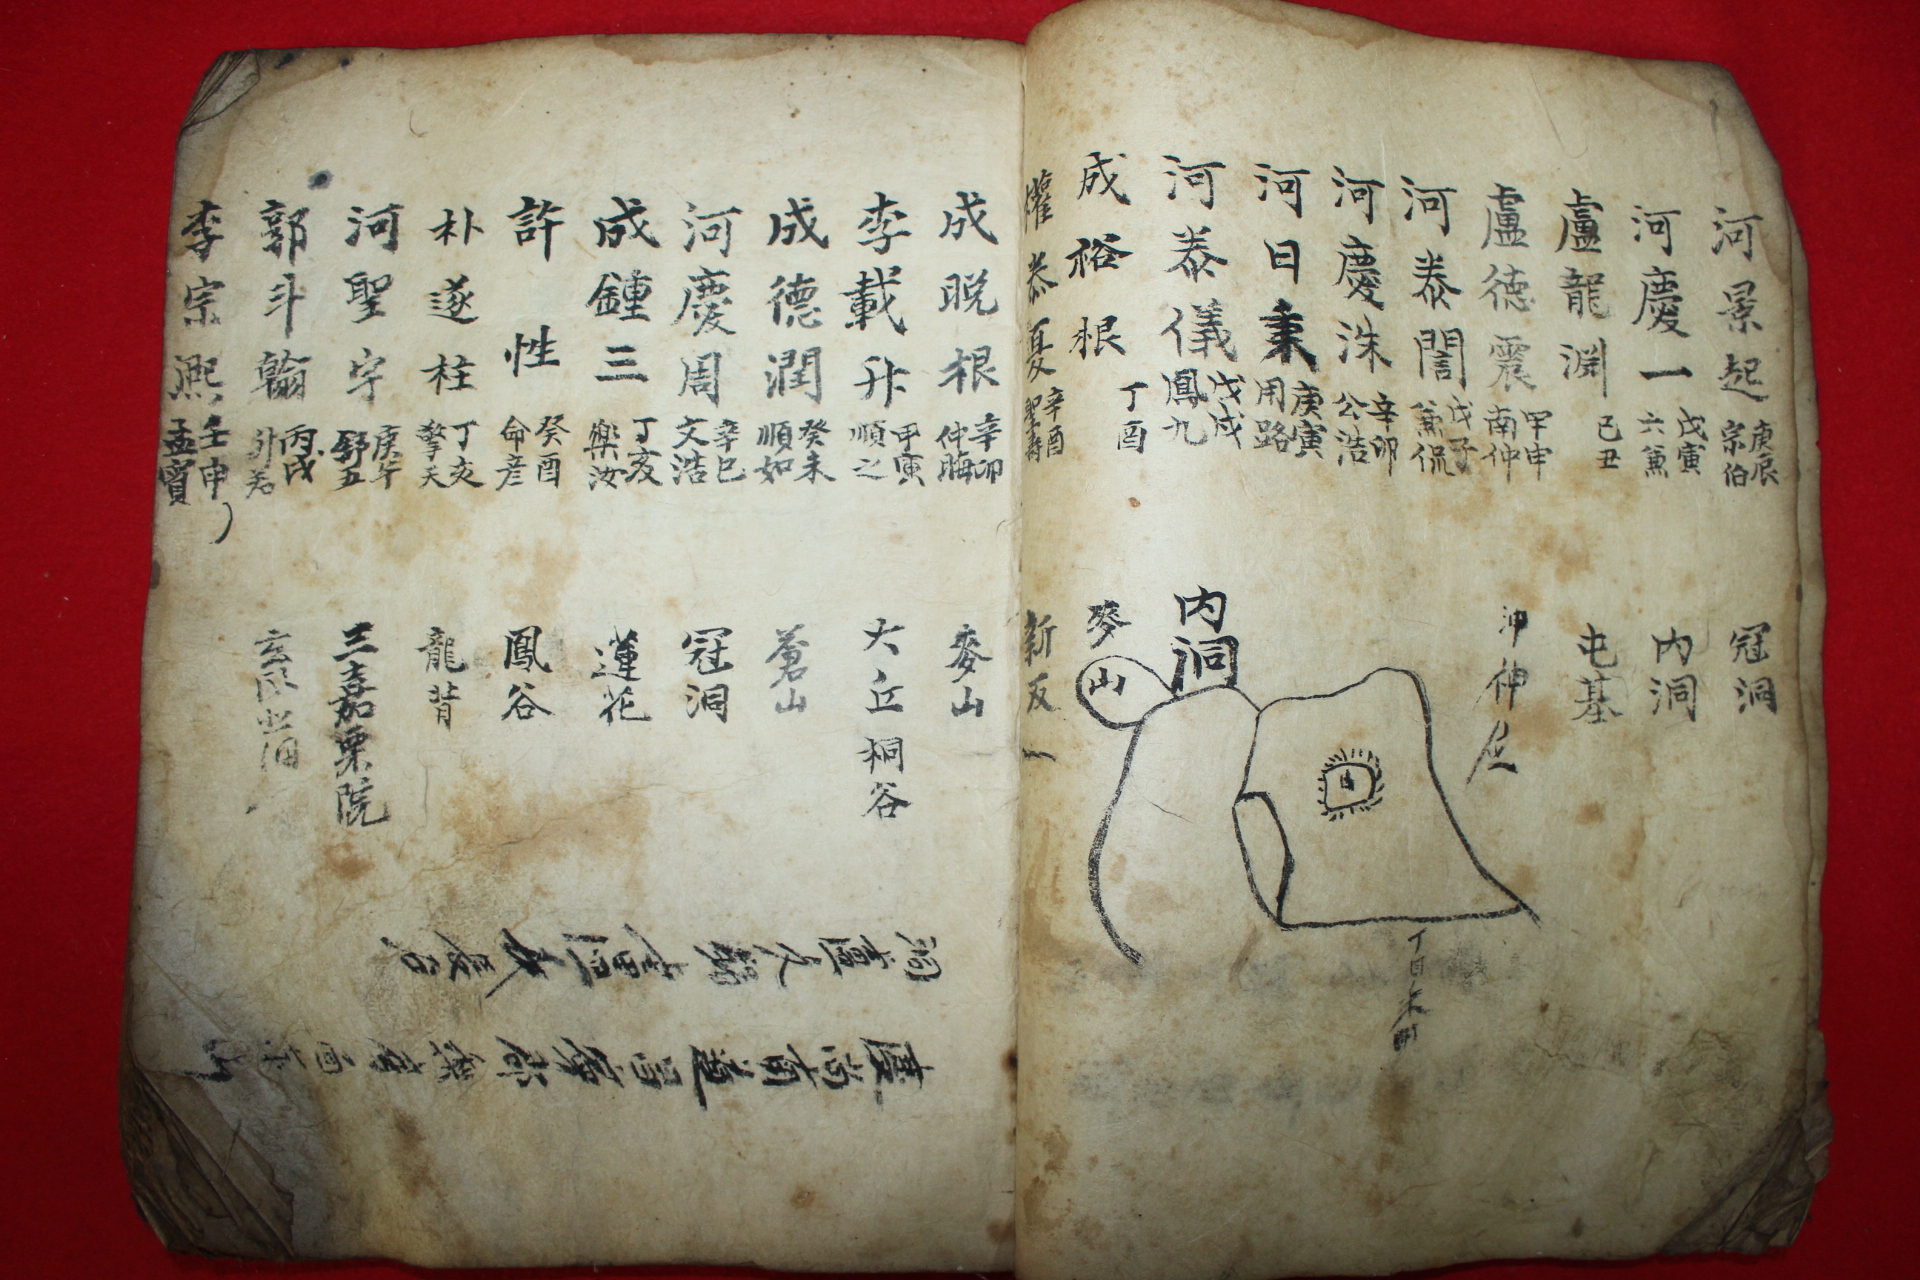 河景起 庚辰 宗伯 冠洞
河慶一 戊寅 六兼 內洞
盧龍淵 己丑 屯基
盧德震 甲申 南仲
河泰誾 戊子 兼侃
河慶洙 辛卯 公浩
河日秉 庚寅 用路
河泰儀 戊戌 鳳九 內洞
成裕根 丁酉 麥山
權泰夏 辛酉 聖壽 新反
成晚根 辛卯 仲晦 麥山
李載升 甲寅 順之 大丘桐谷
成德潤 癸未 順如 蒼山
河慶周 辛巳 文浩 冠洞
成鍾三 丁亥 樂汝 蓮花
許性 癸酉 命彦 鳳谷
朴遂柱 丁亥 擎天 龍背
河聖宇 庚午 舒五 三嘉栗院
郭斗翰 丙戌
李宗熙 壬申 孟賓
慶尚南道昌寧郡